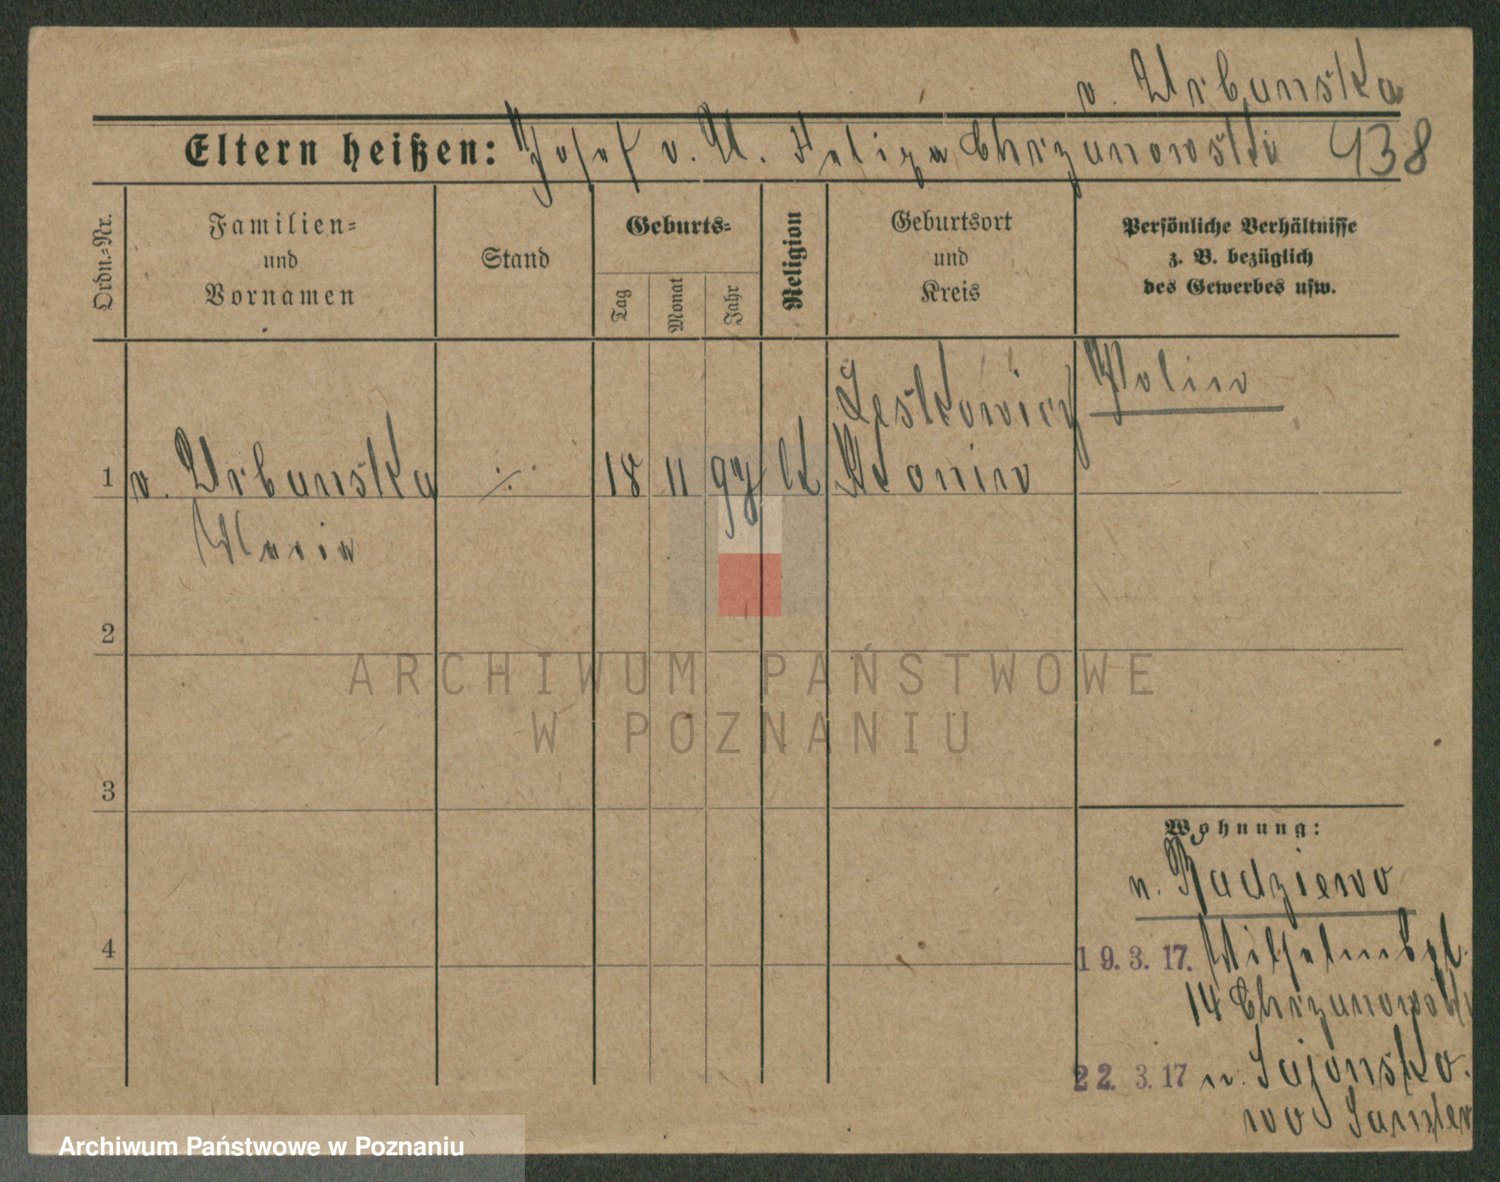 v. Urbanska
Eltern heißen: Josef v. U. Feliza Chrzanowski 938
Ordn.=Nr.
Familien=
und
Vornamen
Stand
Geburts=
Tag
Monat
Jahr
Religion
Geburtsort
und
Kreis
Persönliche Verhältnisse
z. B. bezüglich
des Gewerbes usw.
Polin
Leskowicz
1 v. Urbanska ./. 18 11 97 kt Konin
Maria
2
ARCHIWUM PAŃSTWOWE
W POZNANIU
3
Wohnung:
n. Radziewo
4
19.3.17. Wilhelmspl.
14 Chrzanowski
22.3.17 n.
Samter
Archiwum Państwowe w Poznaniu